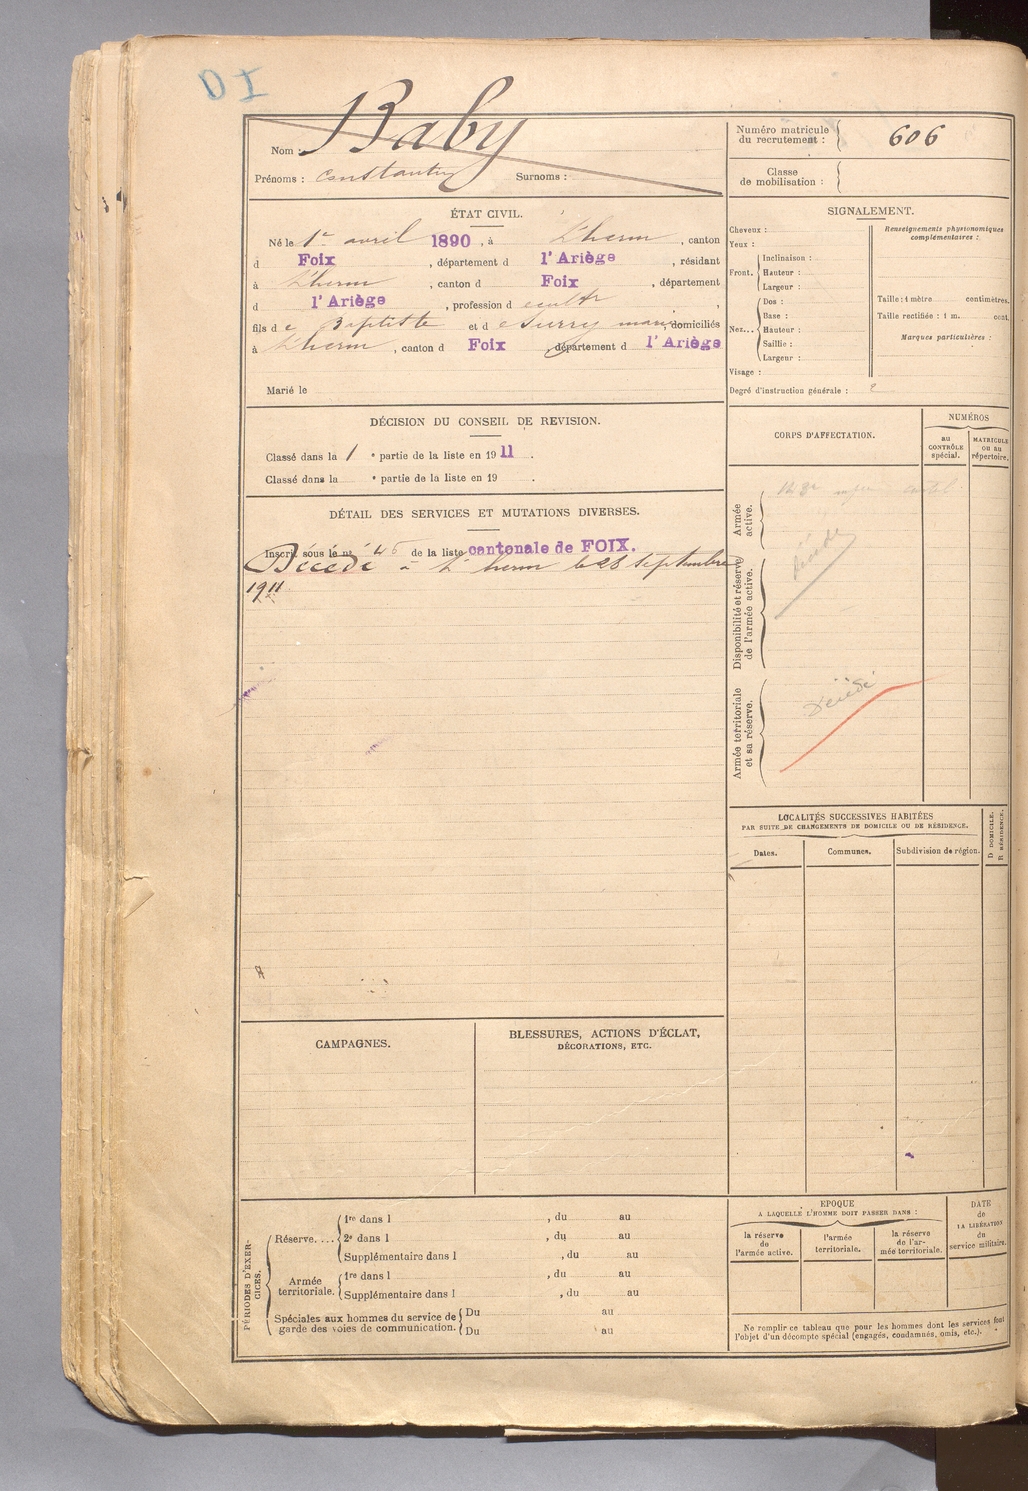 DI
Nom : Baby
Prénoms : Constantin Surnoms :
Numéro matricule
du recrutement : 606
Classe
de mobilisation :
ÉTAT CIVIL.
Né le 1er avril 1890, à L'herm, canton
d Foix, département d l'Ariège, résidant
à L'herm, canton d Foix, département
d l'Ariège, profession d ,
fils de Baptiste et de marie, domiciliés
à L'herm, canton d Foix, département d l'Ariège
Marié le
SIGNALEMENT.
Cheveux :
Yeux :
Front. Inclinaison :
Hauteur :
Largeur :
Nez... Dos :
Base :
Hauteur :
Saillie :
Largeur :
Visage :
Renseignements physionomiques
complémentaires :
Taille : 1 mètre centimètres.
Taille rectifiée : 1 m. cent.
Marques particulières :
Degré d'instruction générale : 2
DÉCISION DU CONSEIL DE REVISION.
Classé dans la 1 e partie de la liste en 1911.
Classé dans la e partie de la liste en 19 .
DÉTAIL DES SERVICES ET MUTATIONS DIVERSES.
Inscrit sous le no de la liste cantonale de FOIX.
Décédé à L'herm le 28 septembre
1911
CORPS D'AFFECTATION.
NUMÉROS
au
CONTRÔLE
spécial.
MATRICULE
ou au
répertoire.
Armée
active.
Décédé
Disponibilité et réserve
de l'armée active.
Décédé
Armée territoriale
et sa réserve.
LOCALITÉS SUCCESSIVES HABITÉES
PAR SUITE DE CHANGEMENTS DE DOMICILE OU DE RÉSIDENCE.
Dates.
Communes.
Subdivision de région.
D DOMICILE.
R RÉSIDENCE.
CAMPAGNES.
BLESSURES, ACTIONS D'ÉCLAT,
DÉCORATIONS, ETC.
PÉRIODES D'EXER-
CICES.
Réserve.... 1re dans l , du au
2e dans l , du au
Supplémentaire dans l , du au
Armée
territoriale. 1re dans l , du au
Supplémentaire dans l , du au
Spéciales aux hommes du service de
garde des voies de communication. Du au
Du au
EPOQUE
A LAQUELLE L'HOMME DOIT PASSER DANS :
la réserve
de
l'armée active.
l'armée
territoriale.
la réserve
de l'ar-
mée territoriale.
DATE
de
LA LIBÉRATION
du
service militaire.
Ne remplir ce tableau que pour les hommes dont les services font
l'objet d'un décompte spécial (engagés, condamnés, omis, etc.).